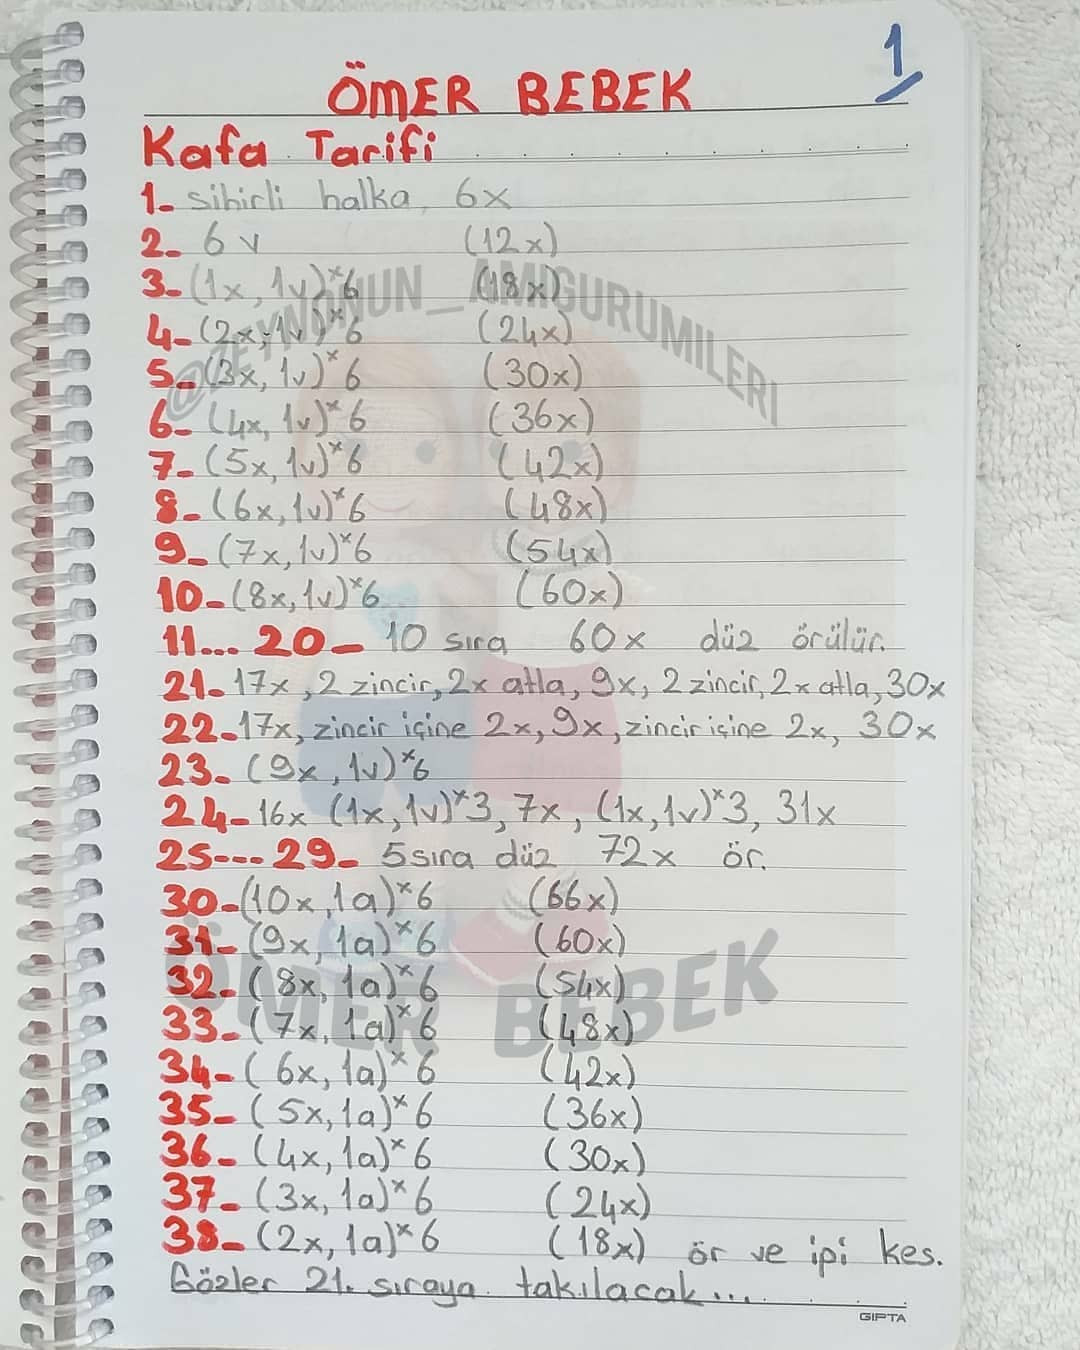 1
ÖMER BEBEK
Kafa Tarifi
1- sihirli halka, 6x
2- 6v (12x)
3- (1x, 1v)*6 (18x)
4- (2x, 1v)*6 (24x)
5- (3x, 1v)*6 (30x)
6- (4x, 1v)*6 (36x)
7- (5x, 1v)*6 (42x)
8- (6x, 1v)*6 (48x)
9- (7x, 1v)*6 (54x)
10- (8x, 1v)*6 (60x)
11... 20- 10 sıra 60x düz örülür.
21- 17x, 2 zincir, 2x atla, 9x, 2 zincir, 2x atla, 30x
22- 17x, zincir içine 2x, 9x, zincir içine 2x, 30x
23- (9x, 1v)*6
24- 16x (1x, 1v)*3, 7x, (1x, 1v)*3, 31x
25--- 29- 5 sıra düz 72x ör.
30- (10x, 1a)*6 (66x)
31- (9x, 1a)*6 (60x)
32- (8x, 1a)*6 (54x)
33- (7x, 1a)*6 (48x)
34- (6x, 1a)*6 (42x)
35- (5x, 1a)*6 (36x)
36- (4x, 1a)*6 (30x)
37- (3x, 1a)*6 (24x)
38- (2x, 1a)*6 (18x) ör ve ipi kes.
Gözler 21. sıraya takılacak...
GIPTA
@ZEYNONUN_AMIGURUMILERI
ÖMER BEBEK